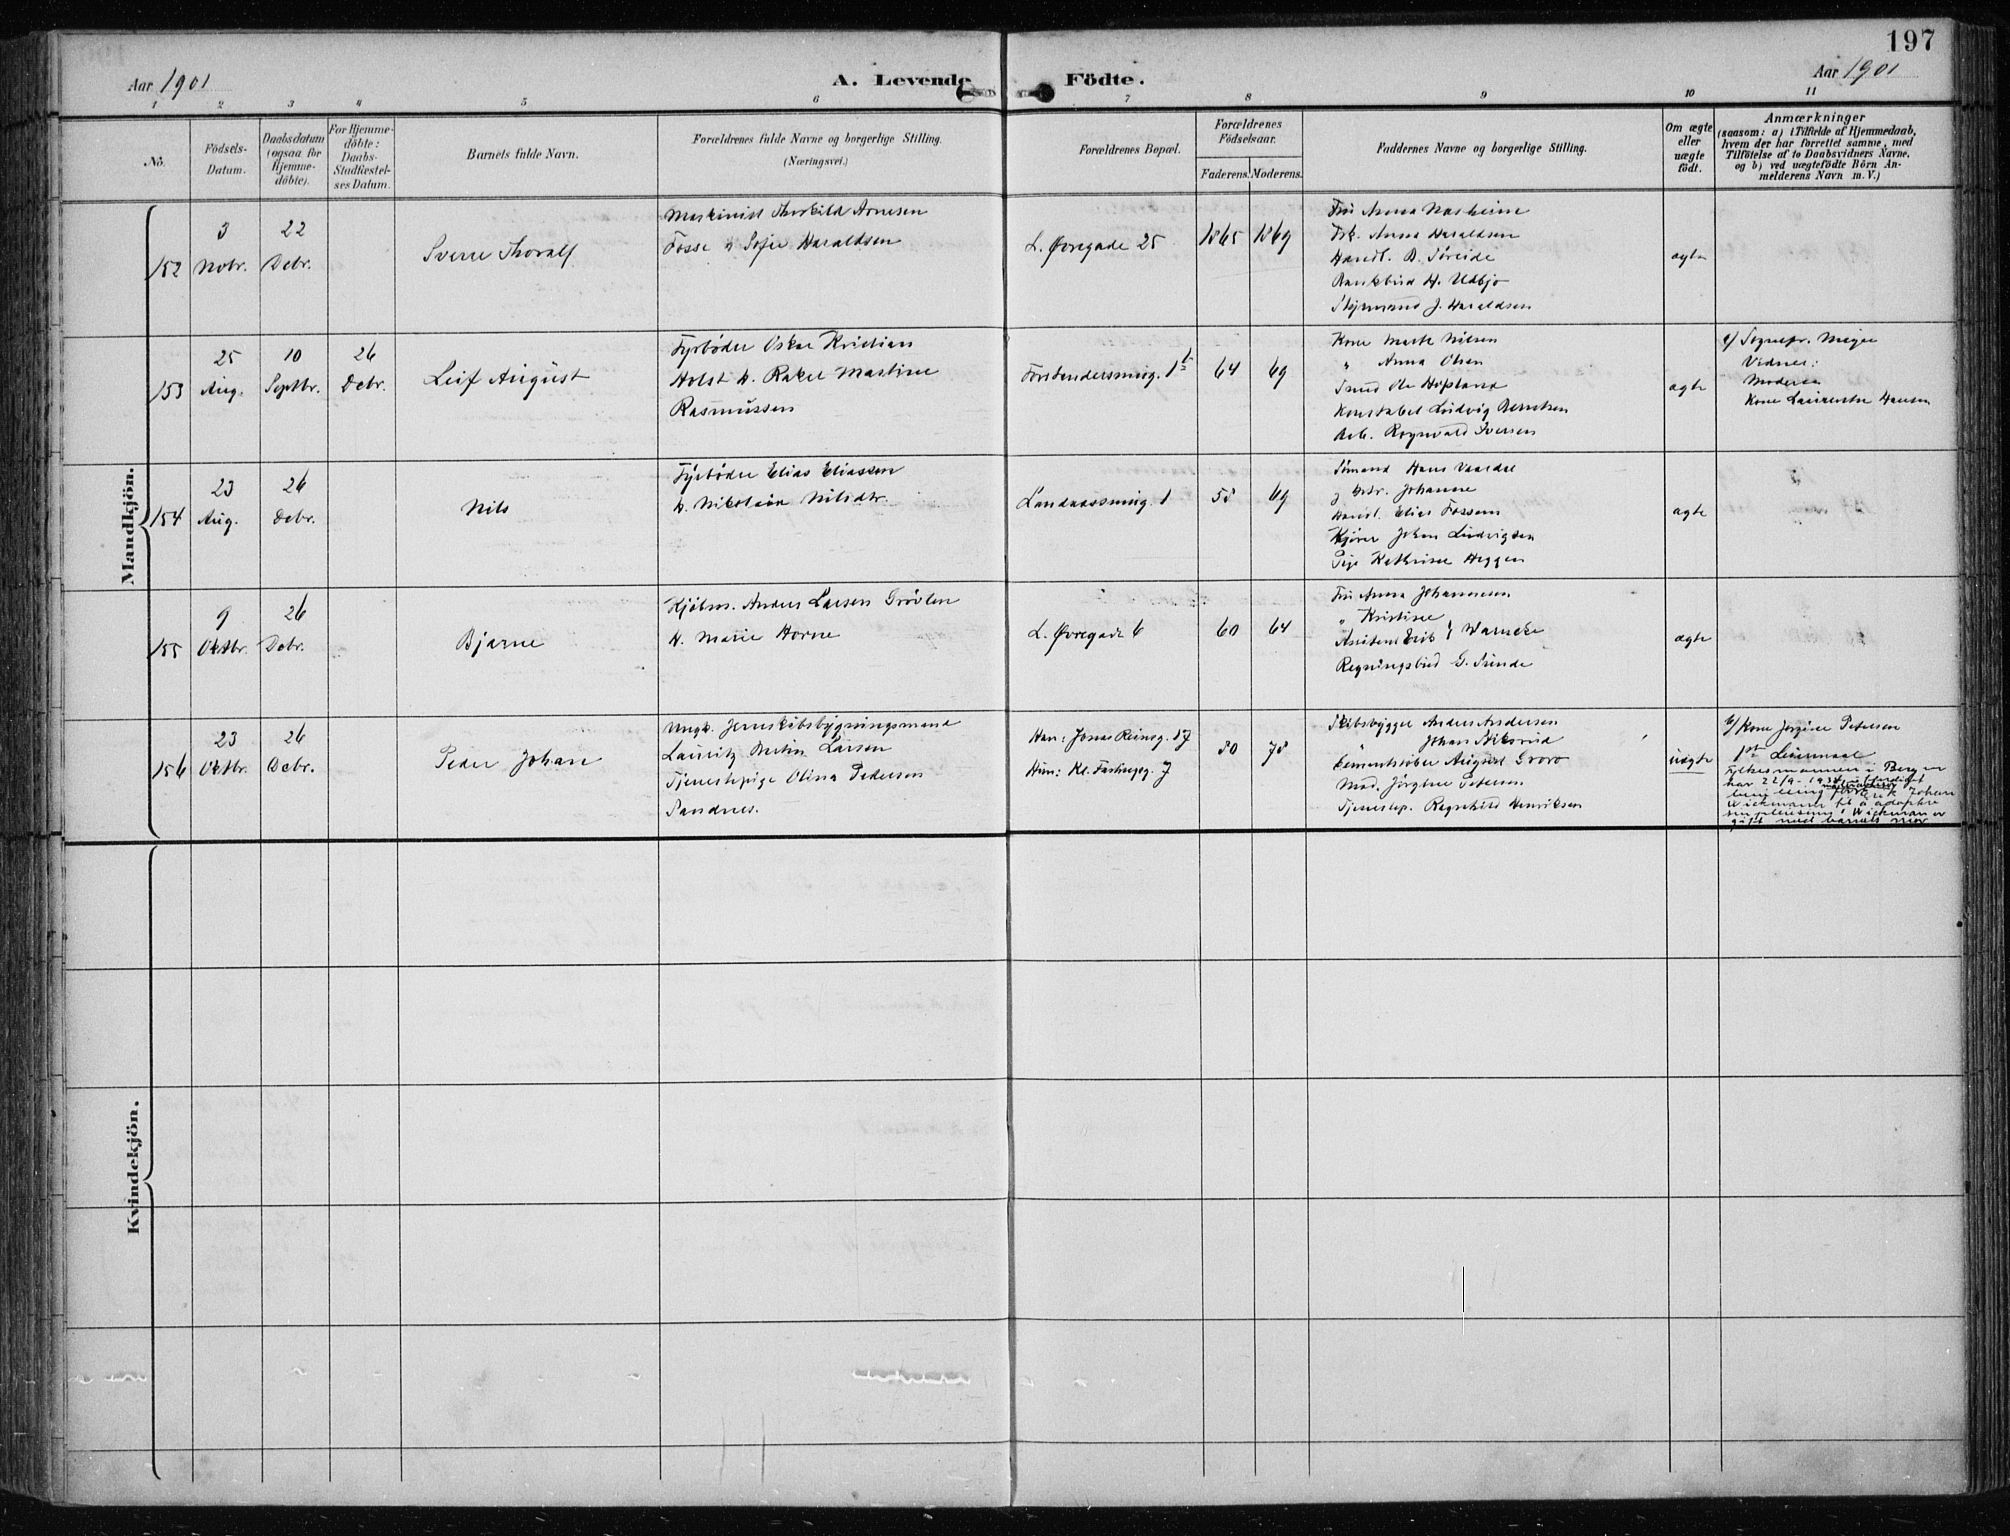 197
Aar 1901
A. Levende Födte.
Aar 1901
1 2 3 4 5 6 7 8 9 10 11
No.
Födsels-
Datum.
Daabsdatum
(ogsaa for
Hjemme-
döbte).
For Hjemme-
döbte:
Daabs-
Stadfæstel-
ses Datum.
Barnets fulde Navn.
Forældrenes fulde Navne og borgerlige Stilling.
(Næringsvei.)
Forældrenes Bopæl.
Forældrenes
Födselsaar.
Faderens. Moderens.
Faddernes Navne og borgerlige Stilling.
Om ægte
eller
uægte
födt.
Anmærkninger
(saasom: a) i Tilfælde af Hjemmedaab,
hvem der har forrettet samme, med
Tilföielse af to Daabsvidners Navne,
og b) ved uægtefödte Börn An-
melderens Navn m. V.)
Mandkjön.
152
3
Novbr.
22
Debr.
Sverre Thoralf
Maskinist Thorkild Arnesen
Fosse Sofie Haraldsen
L. Øvregade 25
1865 1869
Fru Anna
Frk. Anna Haraldsen
Handl. B. Søreide
Bankbud H. Utbjo
Styrmand J. Haraldsen
ægte
153
25
Aug.
10
Septbr.
26
Debr.
Leif August
Fyrbøder Oskar Kristian
Holst h. Rakel Martine
Rasmussen
Forstandersmug. 1b
64 69
Kone Marte Nilsen
" Anna Olsen
Smed Ole Hopland
Konstabel Ludvig Berntsen
Arb. Rognvald Iversen
ægte
a/ Sognepr. Meyer
Vidner:
Moderen
Kone Laurentse Hansen
154
23
Aug.
26
Debr.
Nils
Fyrbøder Elias Eliassen
h. Nikolina Nilsdtr.
Landaasmug. 1
58 69
Sømand Hans
Johanne
Handl. Elias Fossum
Kjører Johan Ludvigsen
Pige Kathrine Heggen
ægte
155
9
Oktbr.
26
Debr.
Bjarne
Kjøbm. Anders Larsen Grøvlen
h. Marie Horne
L. Øvregade 6
60 64
Fru Anna Johannesen
" Kristine
Erik Warncke
Regningsbud G. Sunde
ægte
156
23
Oktbr.
26
Debr.
Peder Johan
Ungk. Jernskibsbygningsmand
Lauritz Martin Larsen
Tjenestepige Olina Pedersen
Sandnes.
Han: Jonas Reinsg. 17
Hun: Kl. 7
80 78
Skibsbygger Anders Andersen
" Johan
Cementstøber August Grovo
Mad. Jørgine Petersen
Tjenestep. Ragnhild Henriksen
uægte
b/ Kone Jørgine Petersen
1ste Leiermaal
Fylkesmannen i Bergen
har 22/9-1934
Erik Johan
Wickmann til å adoptere
Wickmann er
gift med barnets mor
Kvindekjön.